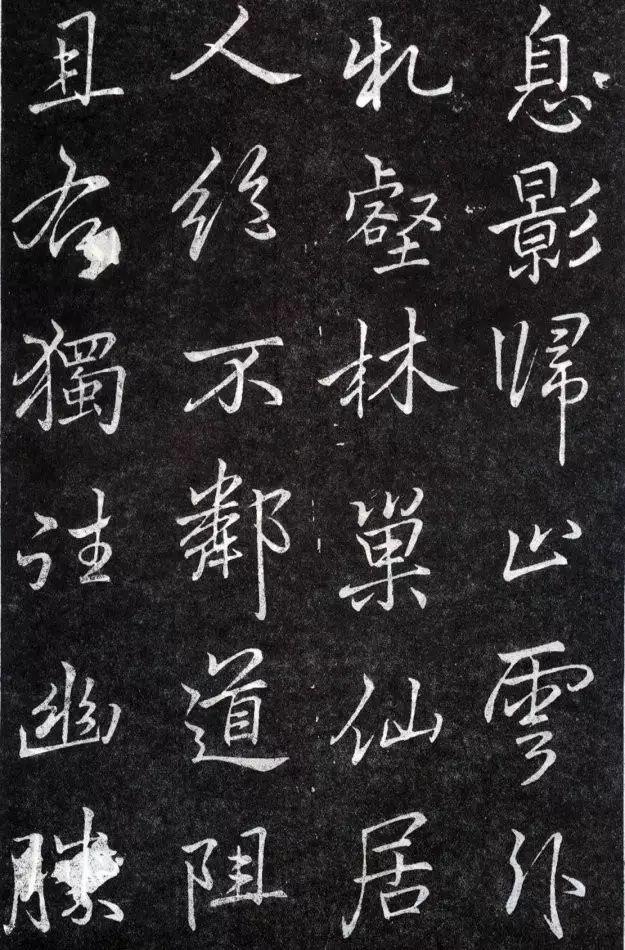 息影歸山雲
壑林巢仙居
人絶不鄰道阻
且右獨往幽勝